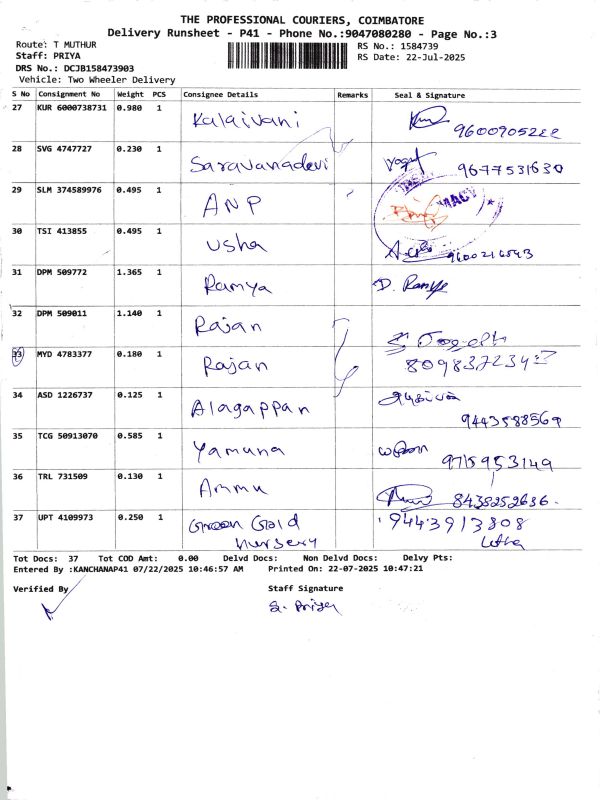 THE PROFESSIONAL COURIERS, COIMBATORE
Delivery Runsheet - P41 - Phone No.:9047080280 - Page No.:3
Route: T MUTHUR
RS No.: 1584739
Staff: PRIYA
RS Date: 22-Jul-2025
DRS No.: DCJB158473903
Vehicle: Two Wheeler Delivery
S No Consignment No Weight PCS Consignee Details Remarks Seal & Signature
27 KUR 6000738731 0.980 1 Kalaivani 9600905222
28 SVG 4747727 0.230 1 Saravanadevi 9677531630
29 SLM 374589976 0.495 1 ANP
30 TSI 413855 0.495 1 Usha
31 DPM 509772 1.365 1 Ramya D. Ramya
32 DPM 509011 1.140 1 Rajan
33 MYD 4783377 0.180 1 Rajan
34 ASD 1226737 0.125 1 Alagappan 9443588569
35 TCG 50913070 0.585 1 Yamuna 9715953149
36 TRL 731509 0.130 1 Ammu 8438252636
37 UPT 4109973 0.250 1 Green Gold 9443913808
Nursery Latha
Tot Docs: 37 Tot COD Amt: 0.00 Delvd Docs: Non Delvd Docs: Delvy Pts:
Entered By :KANCHANAP41 07/22/2025 10:46:57 AM Printed On: 22-07-2025 10:47:21
Verified By Staff Signature
S. Priya